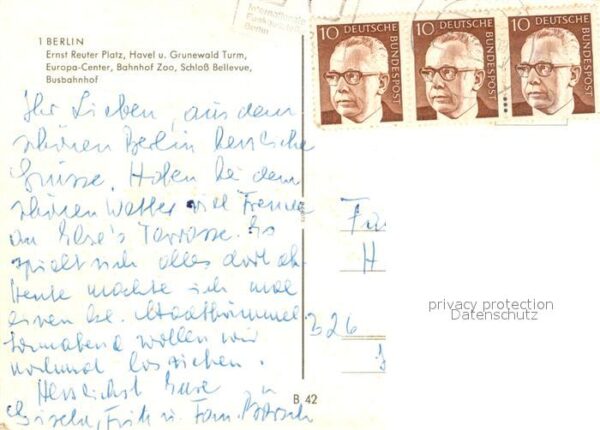 Internationale
Funkausstellung
Berlin
10 DEUTSCHE BUNDESPOST
10 DEUTSCHE BUNDESPOST
10 DEUTSCHE BUNDESPOST
1 BERLIN
Ernst Reuter Platz, Havel u. Grunewald Turm,
Europa-Center, Bahnhof Zoo, Schloß Bellevue,
Busbahnhof
Ihr Lieben, aus dem
schönen Berlin herzliche
Grüsse. Haben bei dem
schönen Wetter viel Freude
an Else's Terrasse. Es
spielt sich alles dort ab.
Heute machte ich mal
einen kl. Stadtbummel
Sonnabend wollen wir
nochmal losziehen.
Herzlichst Eure
Gisela, Fritz u. Fam.
Fa
H
B 26
privacy protection
Datenschutz
B 42